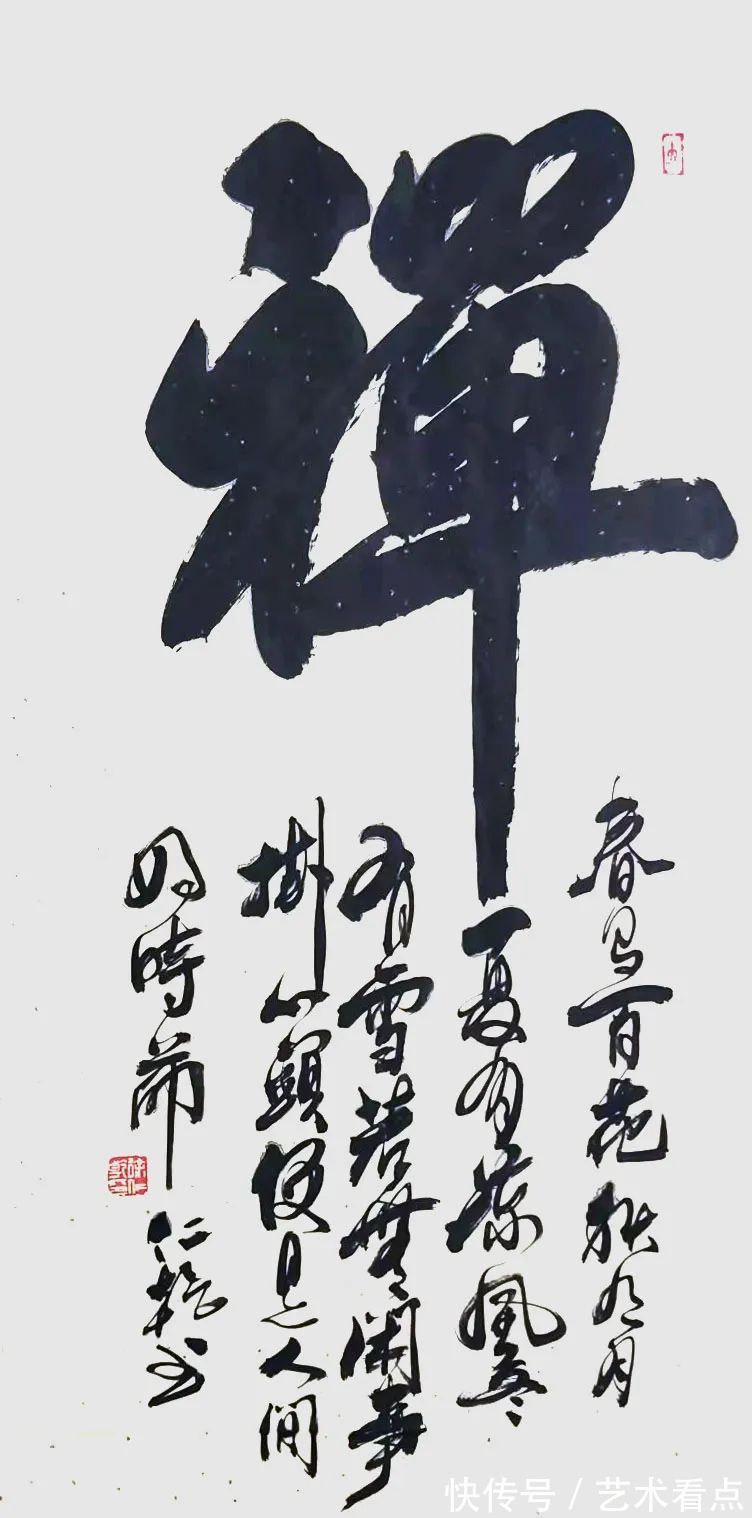 禪
春有百花秋有月
夏有凉風冬
有雪若無閑事
掛心頭便是人间
好時節
仁 书
快传号 / 艺术看点